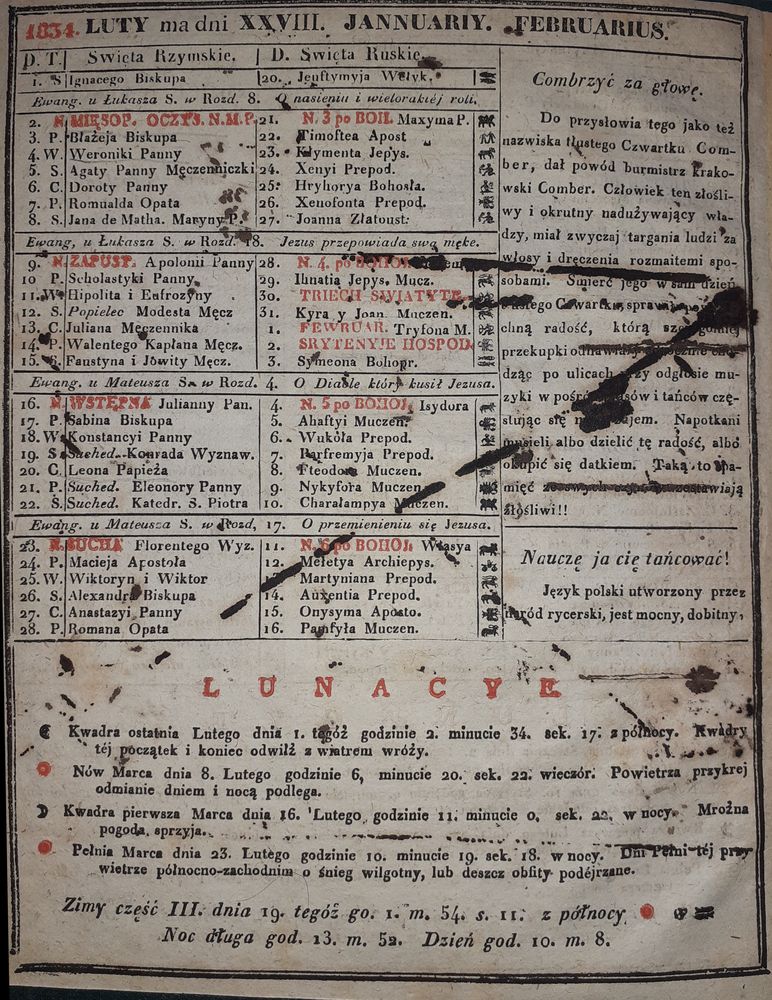 1834. LUTY ma dni XXVIII. JANNUARIY. FEBRUARIUS.
D. T. Święta Rzymskie. D. Święta Ruskie.
1. S Ignacego Biskupa 20. Jenftymyja Wełyk.
Ewang. u Łukasza S. w Rozd. 8. O nasieniu i wielorakiéj roli.
2. N. MIĘSOP. OCZYS. N.M.P. 21. N. 3 po BOH. Maxyma P.
3. P. Błażeja Biskupa 22. Timoftea Apost
4. W. Weroniki Panny 23. Kłymenta Jepys.
5. S. Agaty Panny Męczenniczki 24. Xenyi Prepod.
6. C. Doroty Panny 25. Hryhorya Bohosła.
7. P. Romualda Opata 26. Xenofonta Prepod.
8. S. Jana de Matha. Maryny P. 27. Joanna Złatoust.
Ewang, u Łukasza S. w Rozd. 18. Jezus przepowiada swą mękę.
9. N. ZAPUST. Apolonii Panny 28. N. 4. po BOHOJ.
10 P. Scholastyki Panny 29. Ihnatia Jepys. Mucz.
11. W Hipolita i Eufrozyny 30. TRIECH SWIATYTE
12. S. Popielec Modesta Męcz 31. Kyra y Joan. Muczen.
13. C. Juliana Męczennika 1. FEWRUAR. Tryfona M.
14. P. Walentego Kapłana Męcz. 2. SRYTENYJE HOSPOD
15. S. Faustyna i Jówity Męcz. 3. Symeona Bohopr.
Ewang. u Mateusza S. w Rozd. 4. O Diable który kusił Jezusa.
16. N. WSTĘPNA Julianny Pan. 4. N. 5 po BOHOJ. Isydora
17. P. Sabina Biskupa 5. Ahaftyi Muczen.
18. W. Konstancyi Panny 6. Wukoła Prepod.
19. S Suched. Konrada Wyznaw. 7. Parfremyja Prepod.
20. C. Leona Papieża 8. Fteodora Muczen.
21. P. Suched. Eleonory Panny 9. Nykyfora Muczen
22. S. Suched. Katedr. S. Piotra 10. Charałampya Muczen.
Ewang. u Mateusza S. w Rozd, 17. O przemienieniu się Jezusa.
23. N. SUCHA Florentego Wyz. 11. N. 6 po BOHOJ. Własya
24. P. Macieja Apostoła 12. Meletya Archiepys.
25. W. Wiktoryn i Wiktor 13. Martyniana Prepod.
26. S. Alexandra Biskupa 14. Auxentia Prepod.
27. C. Anastazyi Panny 15. Onysyma Aposto.
28. P. Romana Opata 16. Pamfyła Muczen.
Combrzyć za głowę.
Do przysłowia tego jako też
nazwiska tłustego Czwartku Com-
ber, dał powód burmistrz Krako-
wski Comber. Człowiek ten złośli-
wy i okrutny nadużywający wła-
dzy, miał zwyczaj targania ludzi za
włosy i dręczenia rozmaitemi spo-
sobami. Śmierć jego w sam dzień
Czwartku,
chną radość, którą
przekupki
dząc po ulicach przy odgłosie mu-
zyki w pośród i tańców czę-
stując się Napotkani
musieli albo dzielić tę radość, albo
okupić się datkiem. Taką to pa-
mięć zostawiają
złośliwi!!
Nauczę ja cię tańcować!
Język polski utworzony przez
naród rycerski, jest mocny, dobitny,
LUNACYE
Kwadra ostatnia Lutego dnia 1. tegóż godzinie 2. minucie 34. sek. 17. z północy. Kwadry
téj początek i koniec odwilż z wiatrem wróży.
Nów Marca dnia 8. Lutego godzinie 6, minucie 20. sek. 22. wieczór. Powietrza przykrej
odmianie dniem i nocą podlega.
Kwadra pierwsza Marca dnia 16. Lutego godzinie 11. minucie 0. sek. 22. w nocy. Mroźna
pogoda sprzyja.
Pełnia Marca dnia 23. Lutego godzinie 10. minucie 19. sek. 18. w nocy. Dni Pełni téj przy
wietrze północno-zachodnim o śnieg wilgotny, lub deszcz obfity podéjrzane.
Zimy część III. dnia 19. tegóż go. 1. m. 54. s. 11. z północy
Noc długa god. 13. m. 52. Dzień god. 10. m. 8.